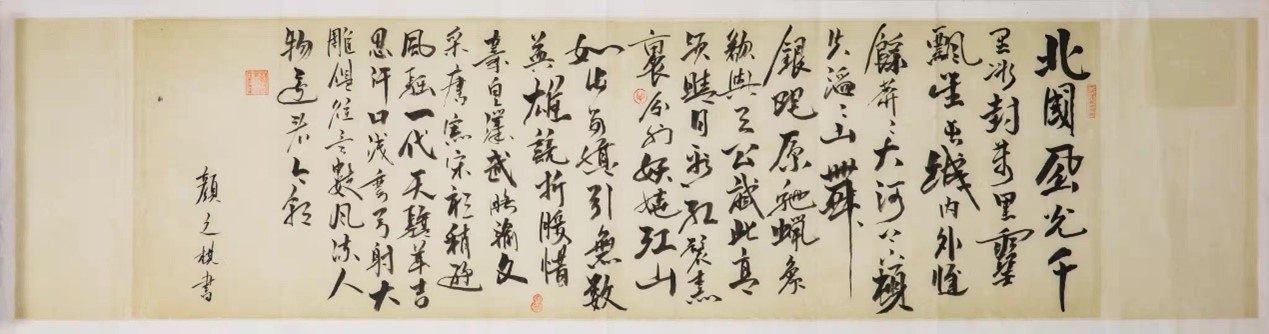 北國風光千
里冰封萬里雪
飄望長城內外惟
餘莽〻大河上下頓
失滔〻山舞
銀蛇原馳蠟象
欲與天公試比高
須晴日看紅裝素
裹分外妖嬈江山
如此多嬌引無數
英雄競折腰惜
秦皇漢武略輸文
采唐宗宋祖稍遜
風騷一代天驕成吉
思汗只識彎弓射大
雕俱往矣數風流人
物還看今朝
顏之棋書